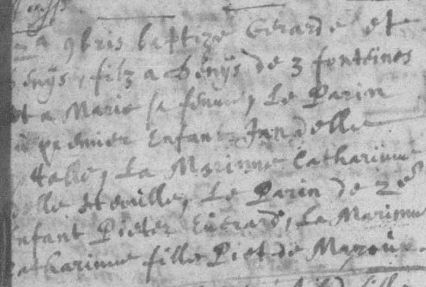 9bris baptize Gerarde et
Denÿs, filz a Denÿs de 3 fonteines
et a Marie sa femme, Le Parin
premier Enfant Jan delle
Halle, La Marinne Catharinne
delle Heuille, Le Parin de 2e
Enfant Pieter Everard, La Marinne
Catharinne fille Piet de